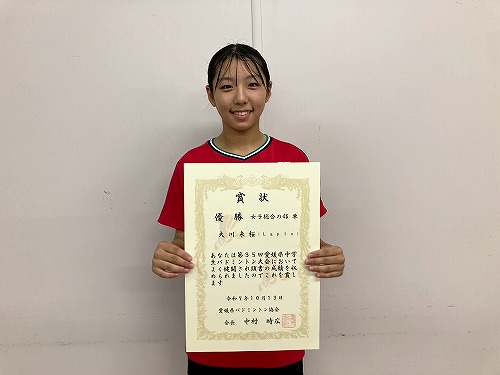 賞状
優勝 女子総合の部
大川 未桜(Lapin)
あなたは第35回愛媛県中学
生バドミントン大会において
よく健闘され頭書の成績を収
められましたのでこれを賞し
ます
令和7年10月13日
愛媛県バドミントン協会
会長 中村 時広